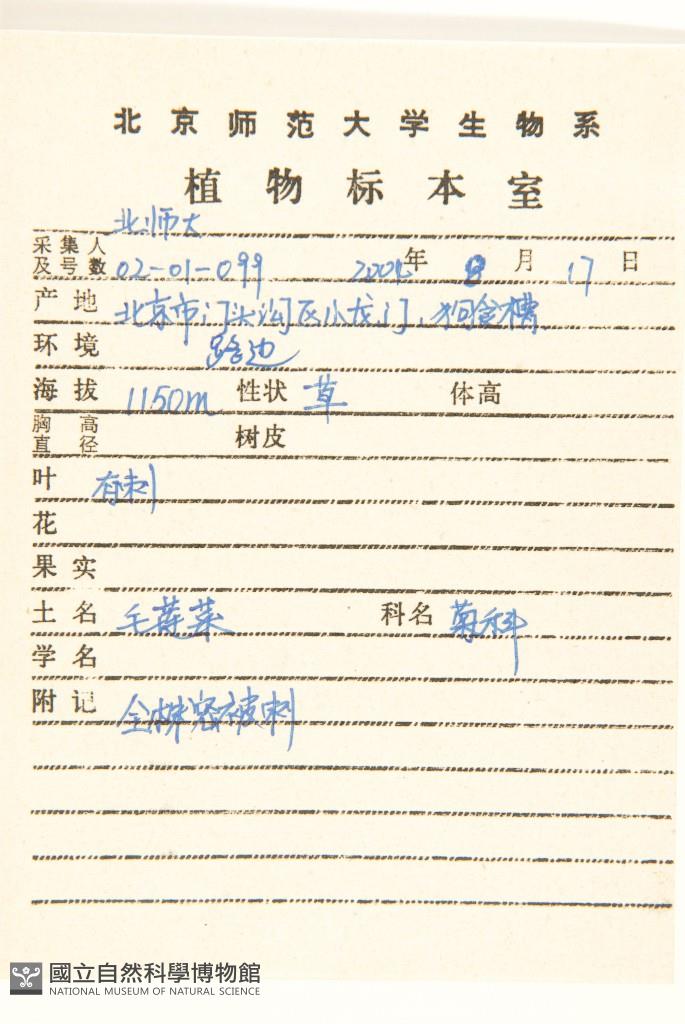 北京师范大学生物系
植物标本室
北师大
采集人
及号数 02-01-099 年 8 月 17 日
产地 北京市门头沟区小龙门,狗舍槽
环境 路边
海拔 1150m 性状 草 体高
胸高
直径 树皮
叶 有刺
花
果实
土名 毛莲菜 科名 菊科
学名
附记 全株密被刺
國立自然科學博物館
NATIONAL MUSEUM OF NATURAL SCIENCE